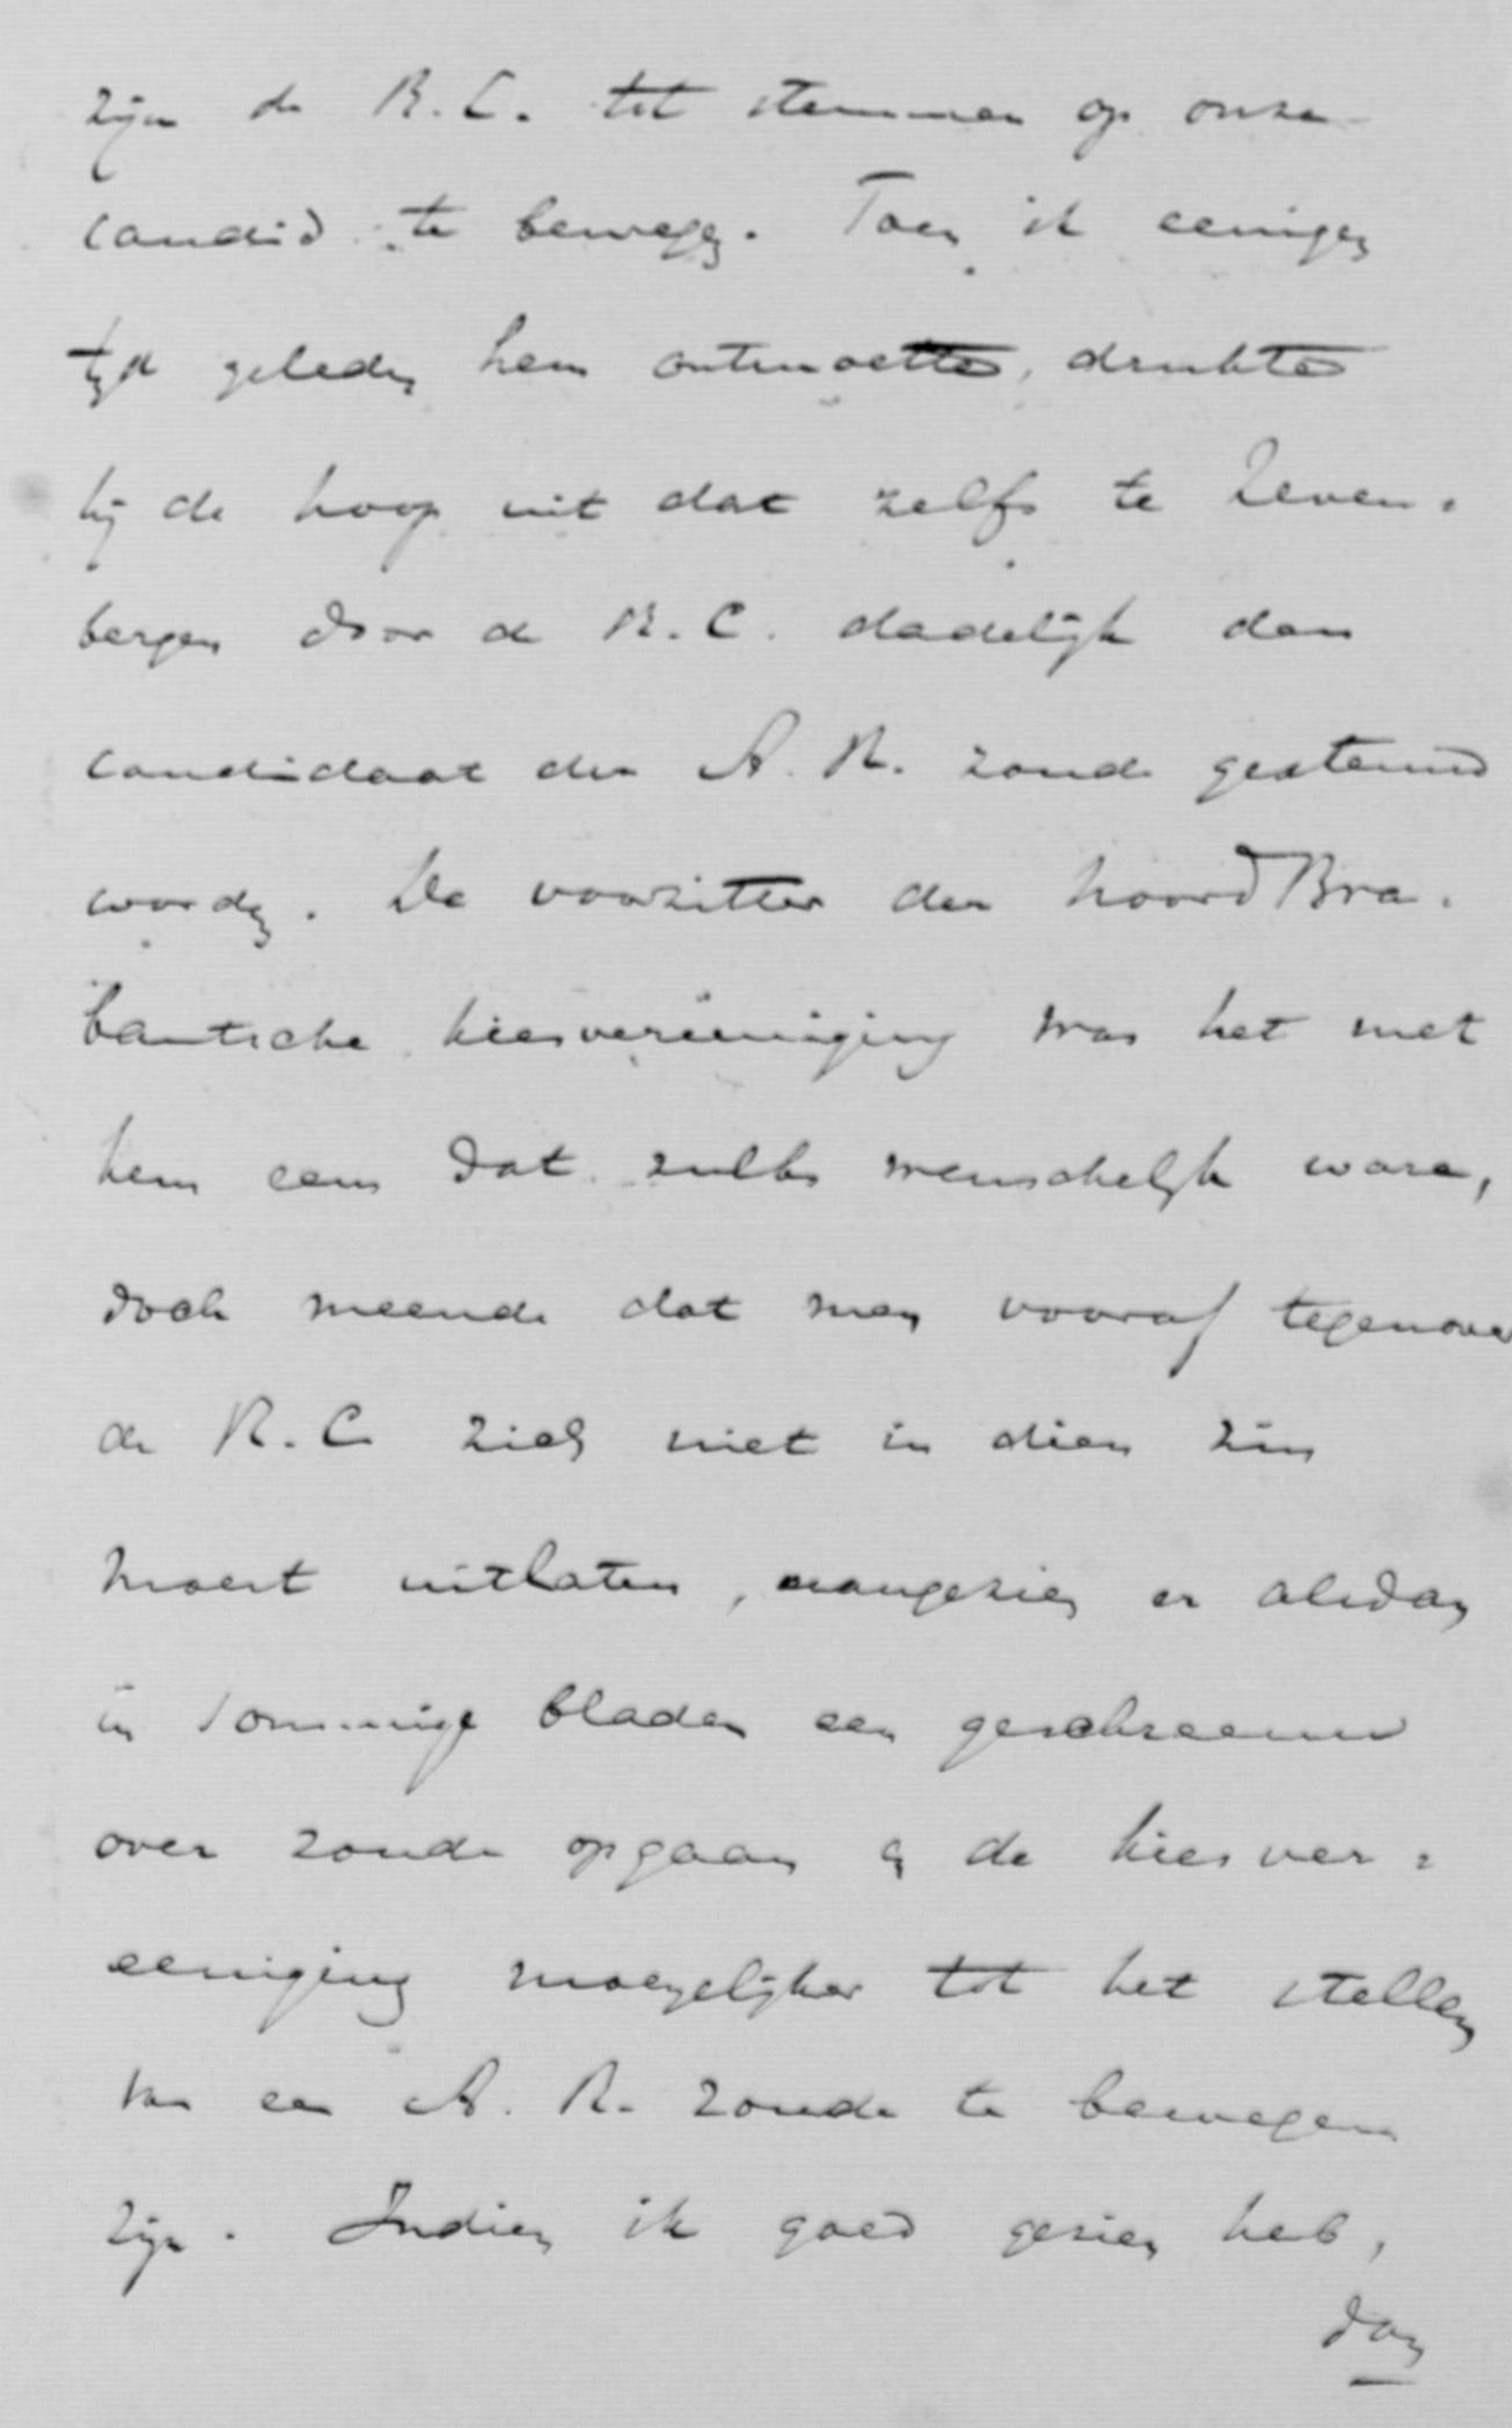 zijn de R.C. tot stemmen op onze
candid. te bewegen. Toen ik eenigen
tijd geleden hem ontmoette, drukte
hij de hoop uit dat zelfs te Zeven=
bergen door de R.C. dadelijk den
candidaat der A.R. zoude gestemd
worden. De voorzitter der NoordBra=
bantsche kiesvereeniging was het met
hem eens dat zulks wenschelijk ware,
doch meende dat men vooraf tegenover
de R.C. zich niet in dien zin
moest uitlaten, aangezien er alsdan
in sommige bladen een geschreeuw
over zoude opgaan en de kiesver=
eeniging moeyelijker tot het stellen
van een A.R. zoude te bewegen
zijn. Indien ik goed gezien heb,
dan